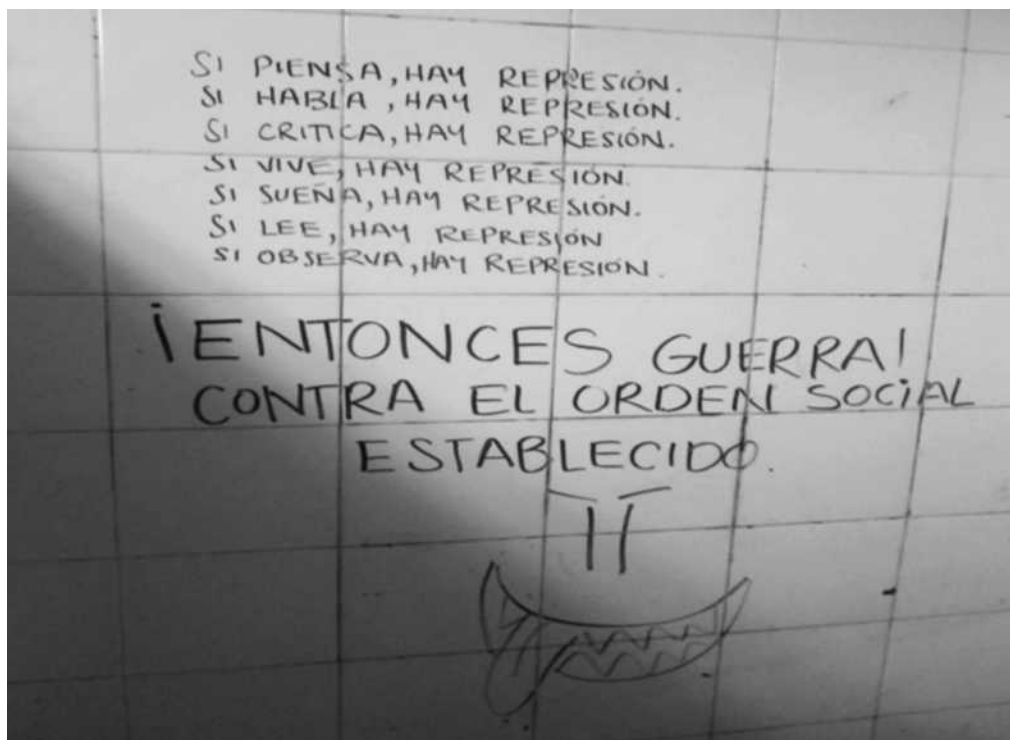 SI PIENSA, HAY REPRESIÓN.
SI HABLA, HAY REPRESIÓN.
SI CRITICA, HAY REPRESIÓN.
SI VIVE, HAY REPRESIÓN.
SI SUEÑA, HAY REPRESIÓN.
SI LEE, HAY REPRESIÓN
SI OBSERVA, HAY REPRESIÓN.
¡ENTONCES GUERRA!
CONTRA EL ORDEN SOCIAL
ESTABLECIDO.